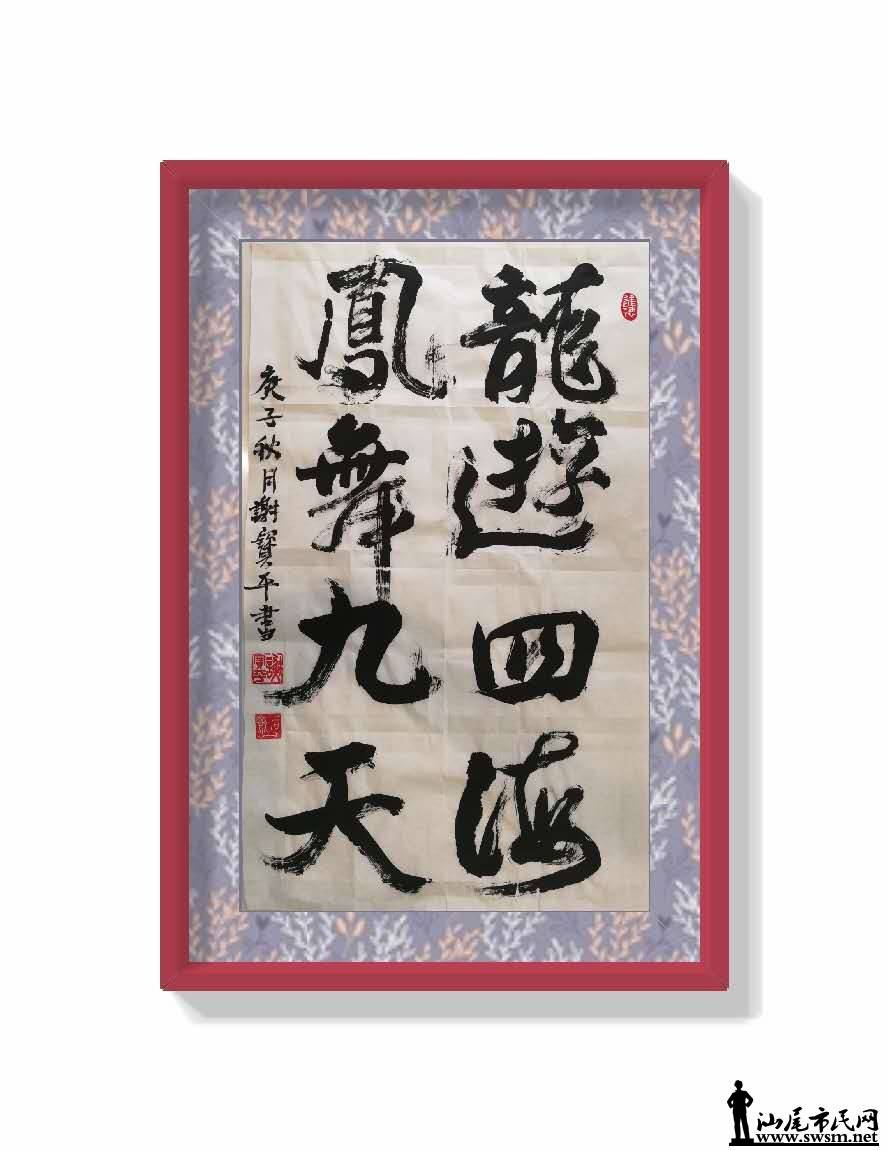 龍遊四海
鳳舞九天
庚子秋月謝寶平書
汕尾市民网
www.swsm.net